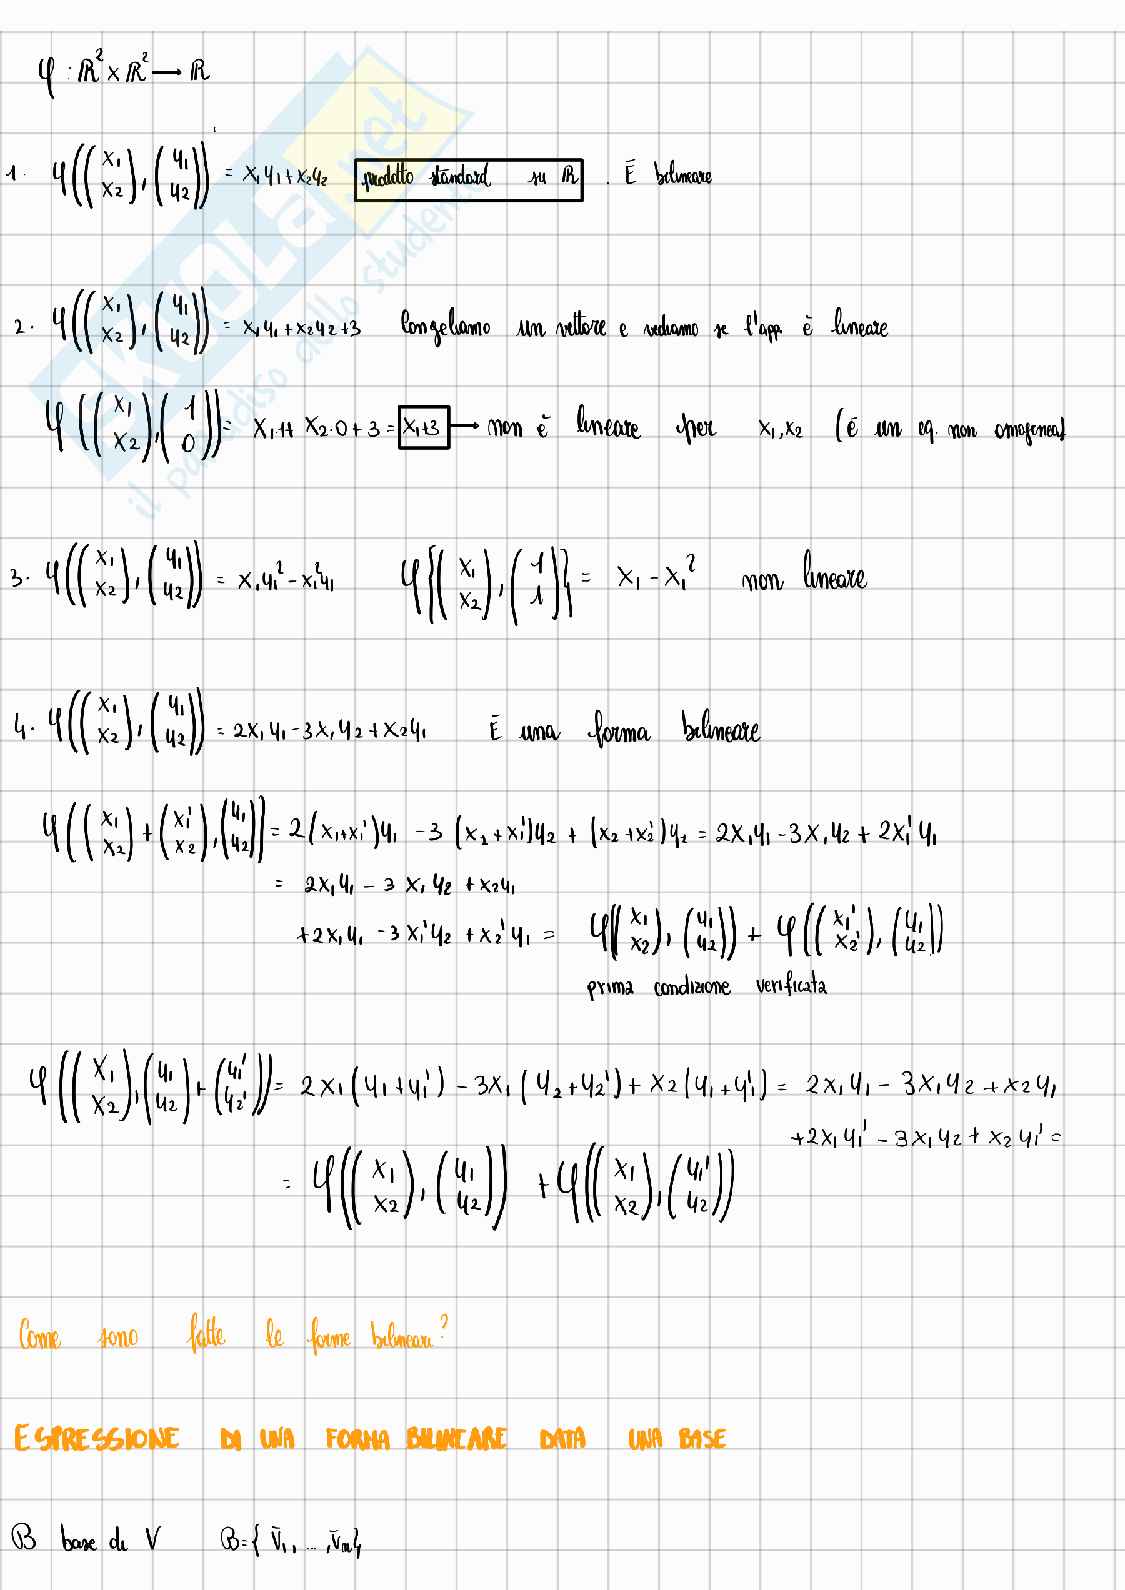 φ : ℝ² × ℝ² → ℝ
1. φ((x₁ x₂), (y₁ y₂)) = x₁y₁ + x₂y₂ prodotto standard su ℝ . È bilineare
2. φ((x₁ x₂), (y₁ y₂)) = x₁y₁ + x₂y₂ + 3 Congeliamo un vettore e vediamo se l'app. è lineare
φ((x₁ x₂), (1 0)) = x₁·1+ x₂·0 + 3 = x₁+3 → non è lineare per x₁, x₂ (è un eq. non omogenea)
3. φ((x₁ x₂), (y₁ y₂)) = x₁y₁² - x₁²y₁ φ{(x₁ x₂), (1 1)} = x₁ - x₁² non lineare
4. φ((x₁ x₂), (y₁ y₂)) = 2x₁y₁ - 3x₁y₂ + x₂y₁ È una forma bilineare
φ((x₁ x₂) + (x₁' x₂), (y₁ y₂)) = 2(x₁+x₁')y₁ - 3(x₂+x₁')y₂ + (x₂+x₂')y₂ = 2x₁y₁ - 3x₁y₂ + 2x₁'y₁
= 2x₁y₁ - 3x₁y₂ + x₂y₁
+2x₁y₁ - 3x₁'y₂ + x₂'y₁ = φ((x₁ x₂), (y₁ y₂)) + φ((x₁' x₂'), (y₁ y₂))
prima condizione verificata
φ((x₁ x₂), (y₁ y₂) + (y₁' y₂')) = 2x₁(y₁+y₁') - 3x₁(y₂+y₂') + x₂(y₁+y₁') = 2x₁y₁ - 3x₁y₂ + x₂y₁
+2x₁y₁' - 3x₁y₂ + x₂y₁' =
= φ((x₁ x₂), (y₁ y₂)) + φ((x₁ x₂), (y₁' y₂))
Come sono fatte le forme bilineari?
ESPRESSIONE DI UNA FORMA BILINEARE DATA UNA BASE
B base di V B={v̄₁, ..., v̄ₙ}
SKUOLA.net
il paradiso dello studente